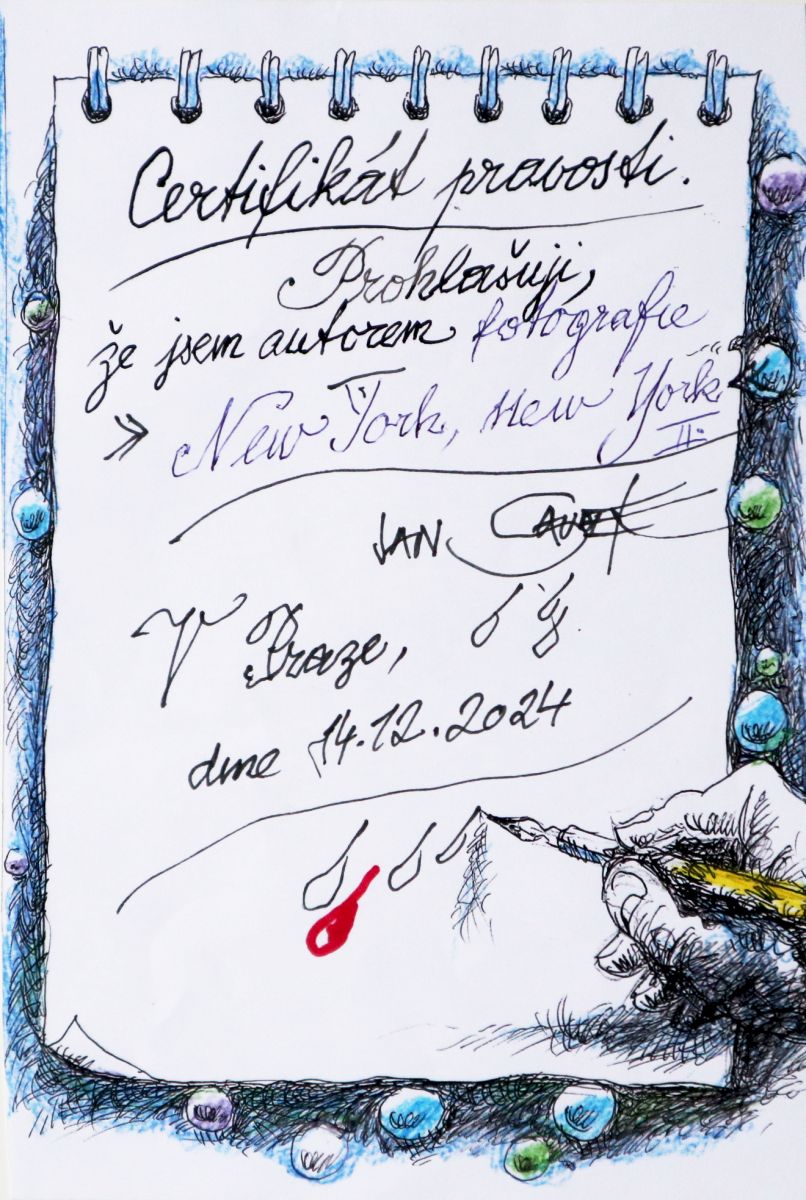 Certifikát pravosti.
Prohlašuji,
že jsem autorem fotografie
» New York, New York“
II.
JAN
V Praze,
dne 14.12.2024